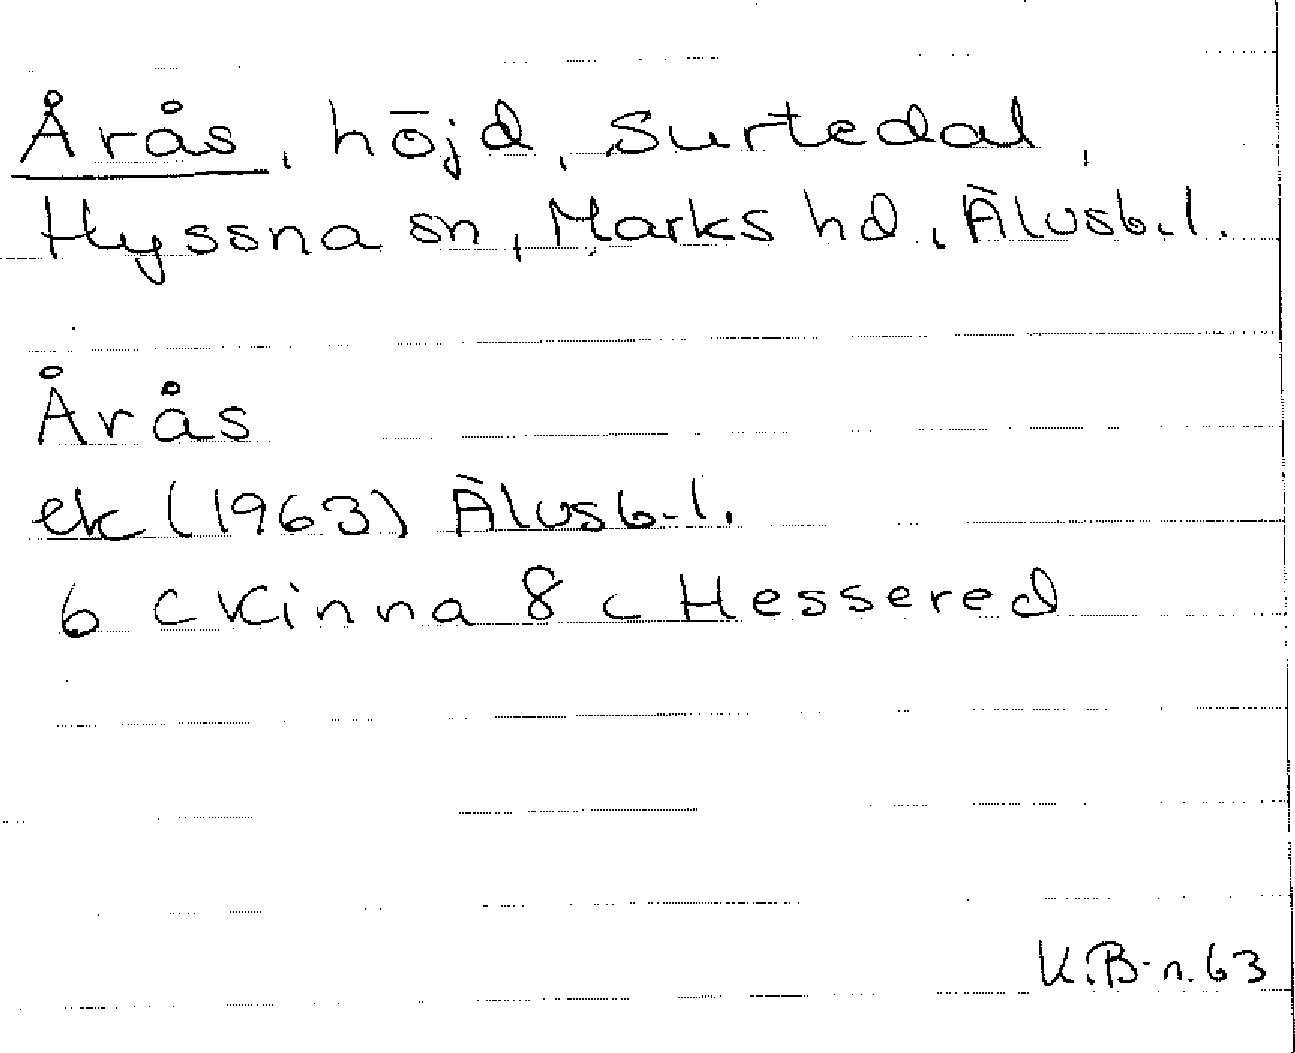 Årås, höjd, Surtedal,
Hyssna sn, Marks hd, Älvsb.l.
Årås
ek (1963) Älvsb.l.
6 C Kinna 8 c Hessered
K.B-n.63